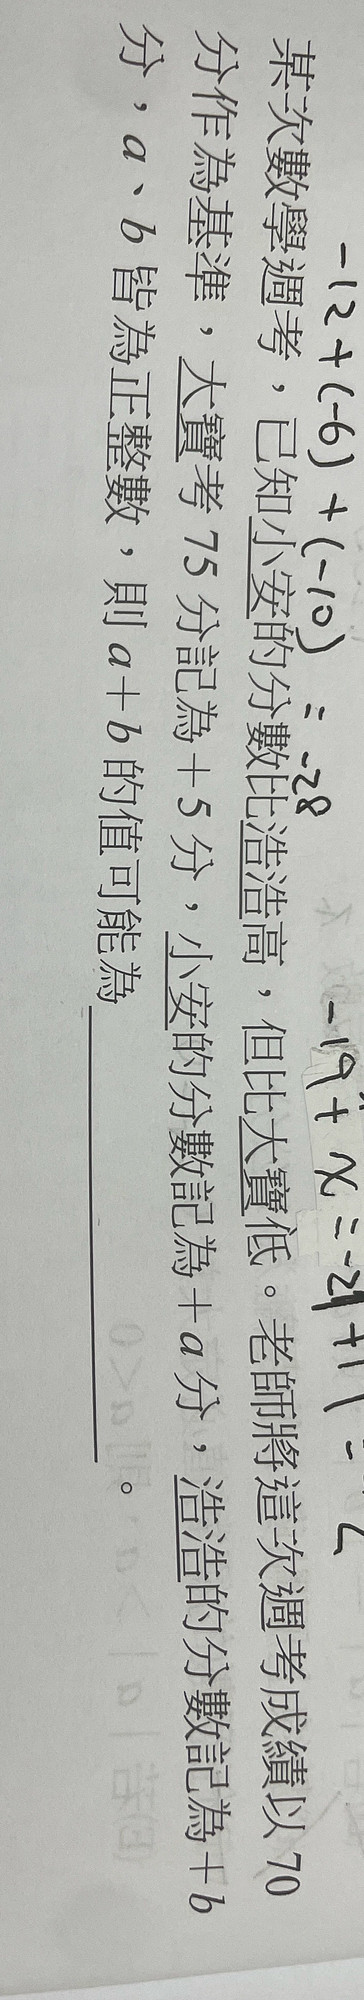 -12+(-6)+(-10) = -28
-19+x=-21+1
某次數學週考，已知小安的分數比浩浩高，但比大寶低。老師將這次週考成績以70
分作為基準，大寶考75分記為+5分，小安的分數記為+a分，浩浩的分數記為+b
分，a、b皆為正整數，則a+b的值可能為＿＿＿＿＿＿＿＿。